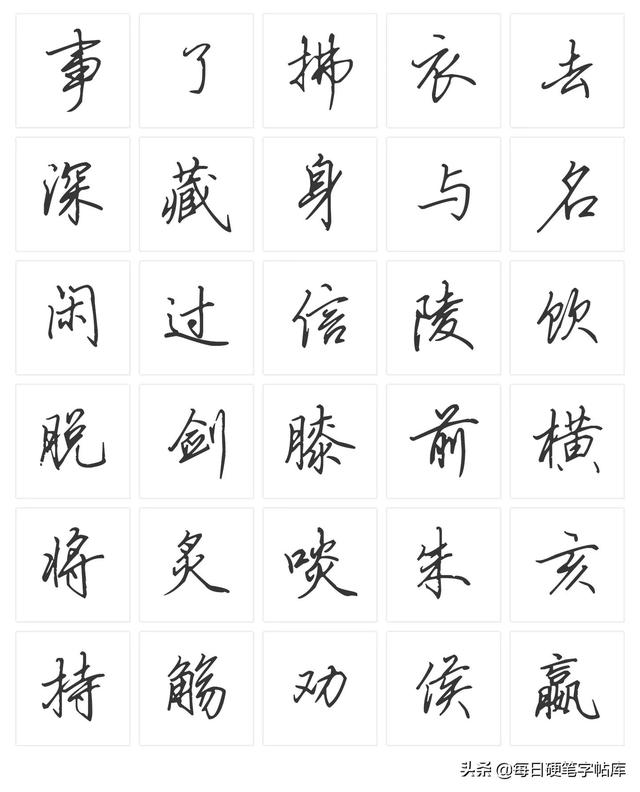 事了拂衣去
深藏身与名
闲过信陵饮
脱剑膝前横
将炙啖朱亥
持觞劝侯嬴
头条 @每日硬笔字帖库